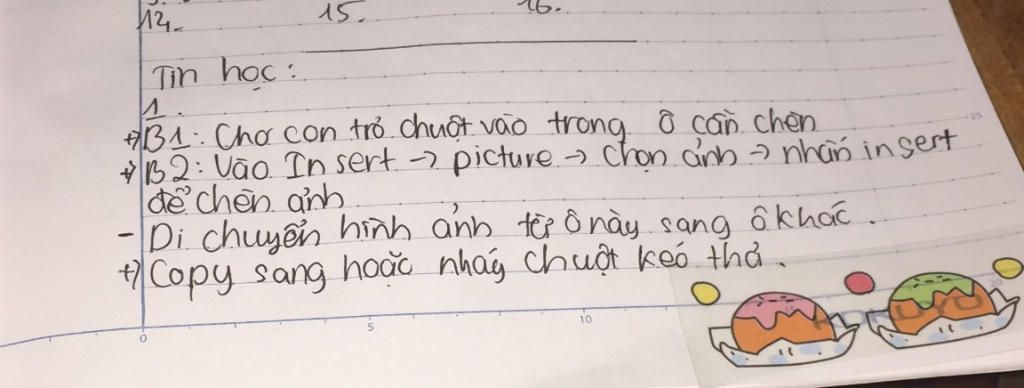 12. 15. 16.
Tin học:
1.
+) B1: Cho con trỏ chuột vào trong ô cần chèn
+) B2: Vào Insert → picture → chọn ảnh → nhấn insert
để chèn ảnh
- Di chuyển hình ảnh từ ô này sang ô khác.
+) Copy sang hoặc nháy chuột kéo thả.
25
0 5 10